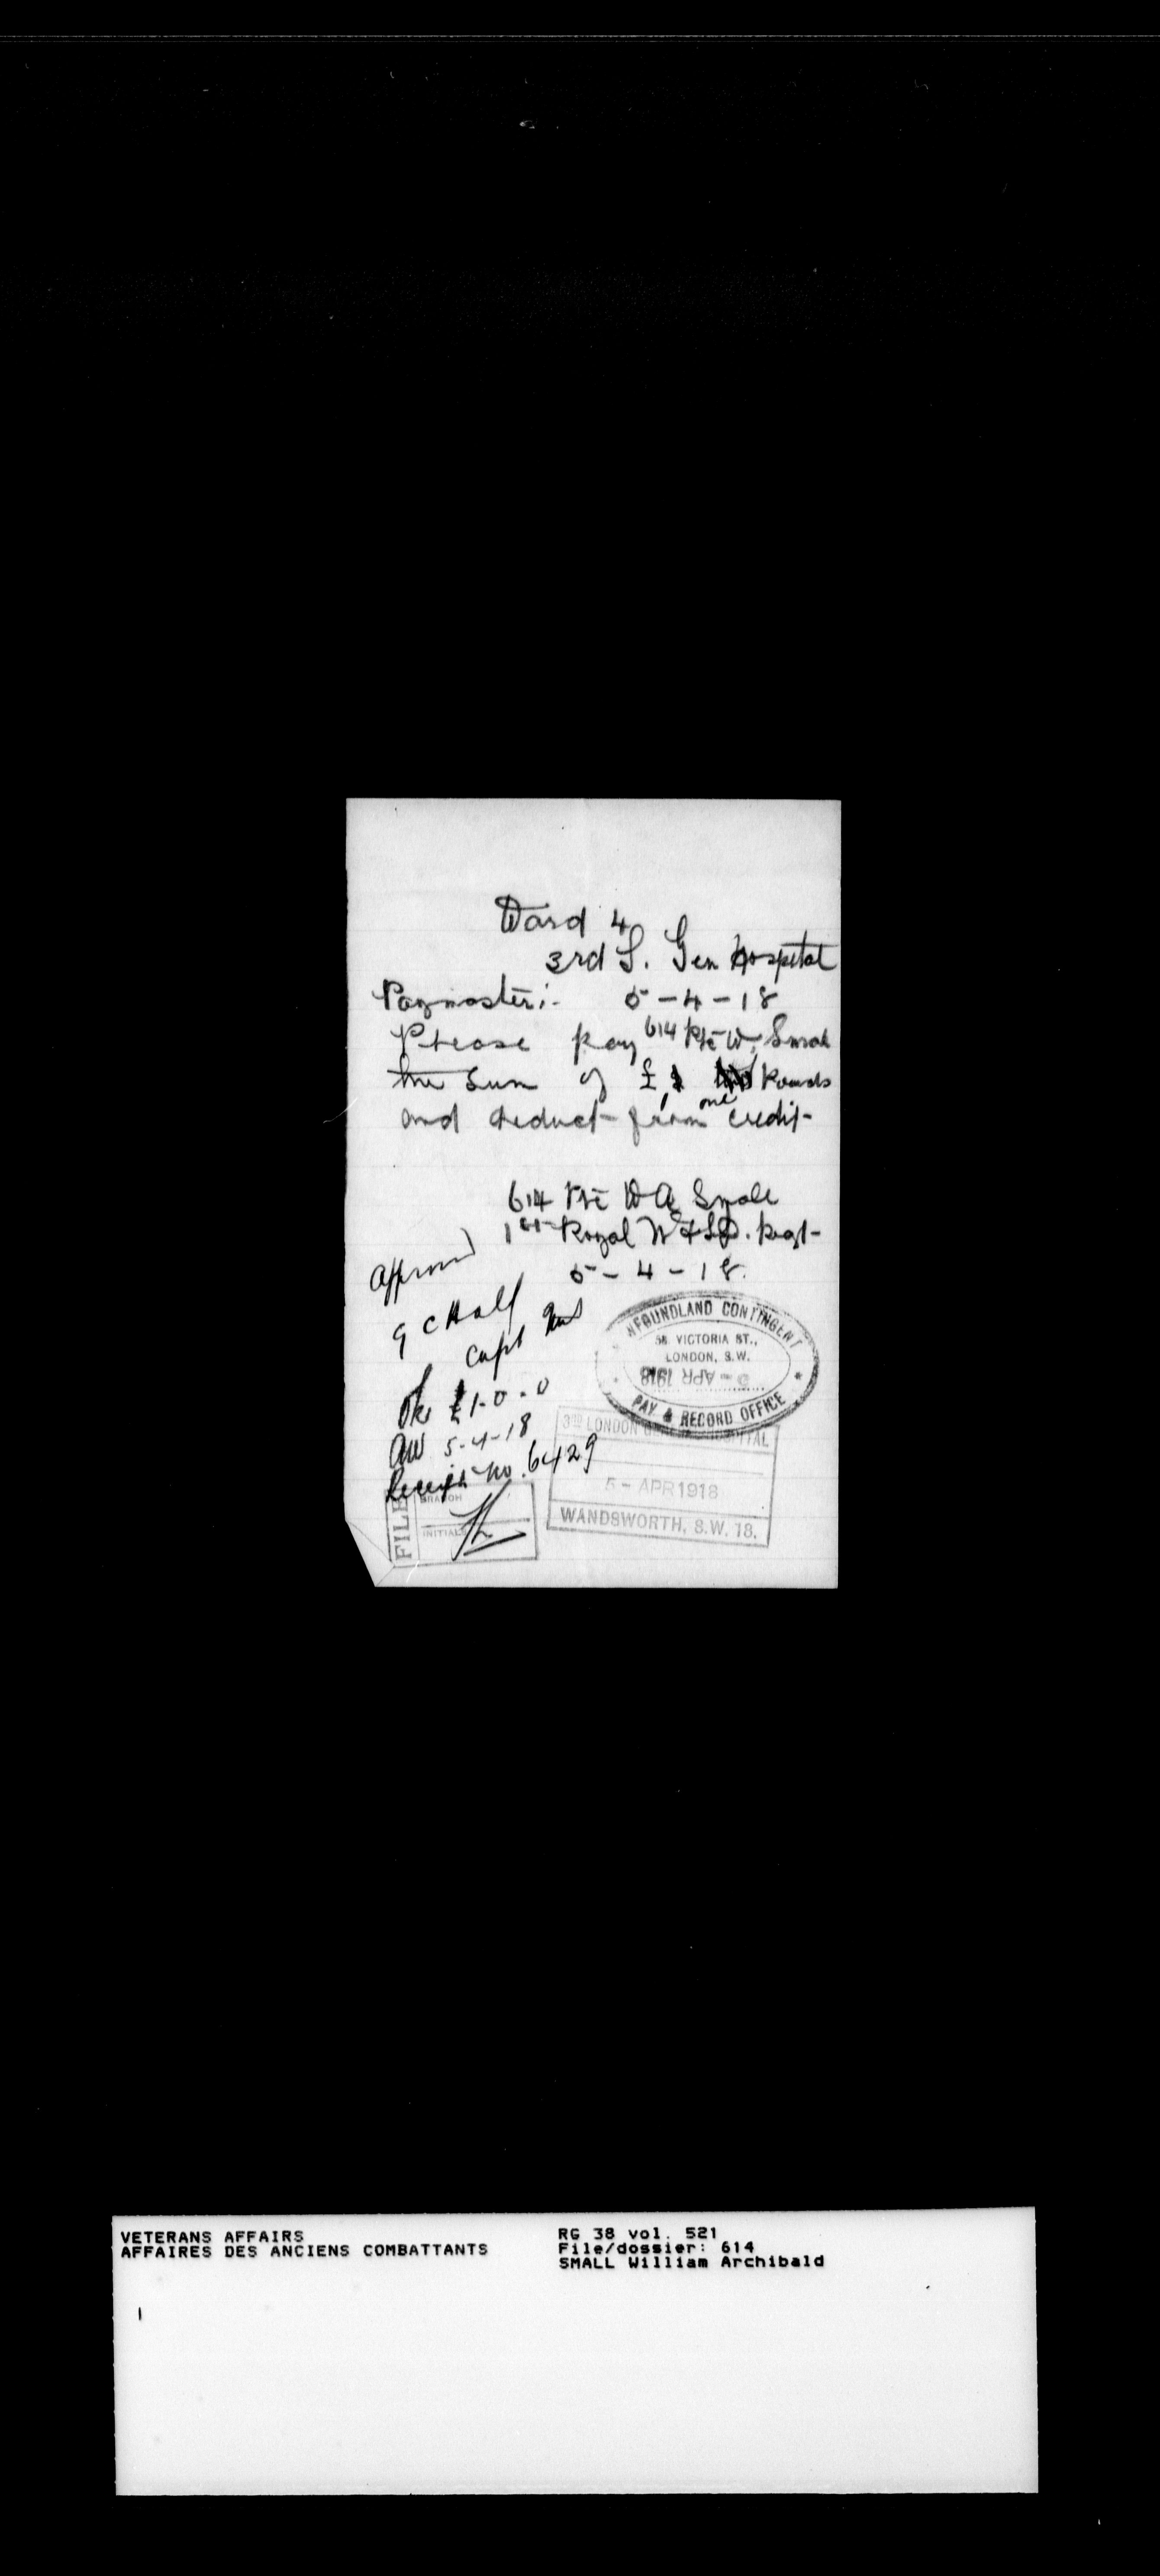 Ward 4
3rd L. Gen Hospital
Paymaster:- 5-4-18
Please pay 614 Pte W. Small
the sum of £1 one Pounds
and deduct from credit-
614 Pte W A Small
1st Royal Nfld. Regt-
5-4-18.
Approved
G C Hall
Capt
£1-0-0
AW 5-4-18
Receipt No. 6429
NFOUNDLAND CONTINGENT
58. VICTORIA ST.,
LONDON, S.W.
5-APR 1918
PAY & RECORD OFFICE
3RD LONDON GENERAL HOSPITAL
5-APR 1918
WANDSWORTH, S.W. 18.
FILE
BRANCH
INITIALS
VETERANS AFFAIRS
AFFAIRES DES ANCIENS COMBATTANTS
RG 38 vol. 521
File/dossier: 614
SMALL William Archibald